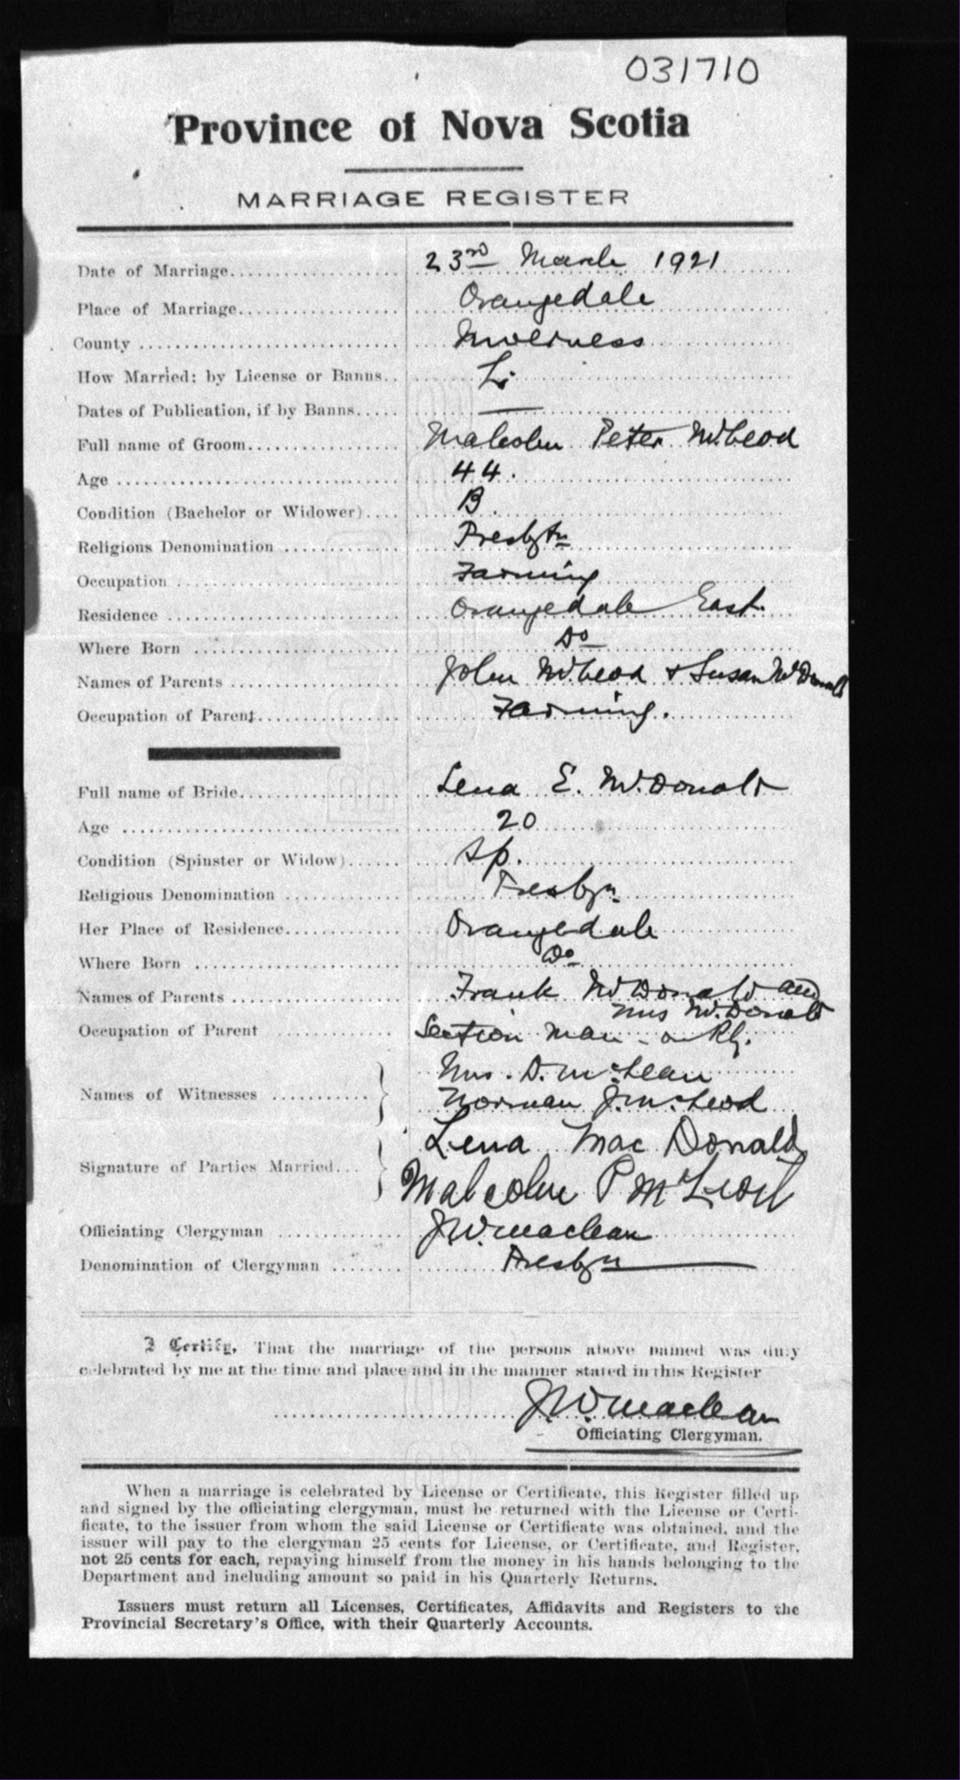 031710
Province of Nova Scotia
MARRIAGE REGISTER
Date of Marriage 23rd March 1921
Place of Marriage Orangedale
County Inverness
How Married: by License or Banns Li
Dates of Publication, if by Banns —
Full name of Groom Malcolm Peter McLeod
Age 44.
Condition (Bachelor or Widower) B.
Religious Denomination Presbytn
Occupation Farming
Residence Orangedale East.
Where Born Do
Names of Parents John McLeod & Susan McDonald
Occupation of Parent Farming.
Full name of Bride Lena E. McDonald
Age 20
Condition (Spinster or Widow) Sp.
Religious Denomination Presbyn
Her Place of Residence Orangedale
Where Born Do
Names of Parents Frank McDonald and
Mrs McDonald
Occupation of Parent Section man - on Rly.
Names of Witnesses Mrs. D. McLean
Norman J. McLeod
Signature of Parties Married Lena MacDonald
Malcolm P McLeod
Officiating Clergyman J.W. Maclean
Denomination of Clergyman Presbyn
I Certify, That the marriage of the persons above named was duly
celebrated by me at the time and place and in the manner stated in this Register
J.W. Maclean
Officiating Clergyman.
When a marriage is celebrated by License or Certificate, this Register filled up
and signed by the officiating clergyman, must be returned with the License or Certi-
ficate, to the issuer from whom the said License or Certificate was obtained, and the
issuer will pay to the clergyman 25 cents for License, or Certificate, and Register,
not 25 cents for each, repaying himself from the money in his hands belonging to the
Department and including amount so paid in his Quarterly Returns.
Issuers must return all Licenses, Certificates, Affidavits and Registers to the
Provincial Secretary's Office, with their Quarterly Accounts.